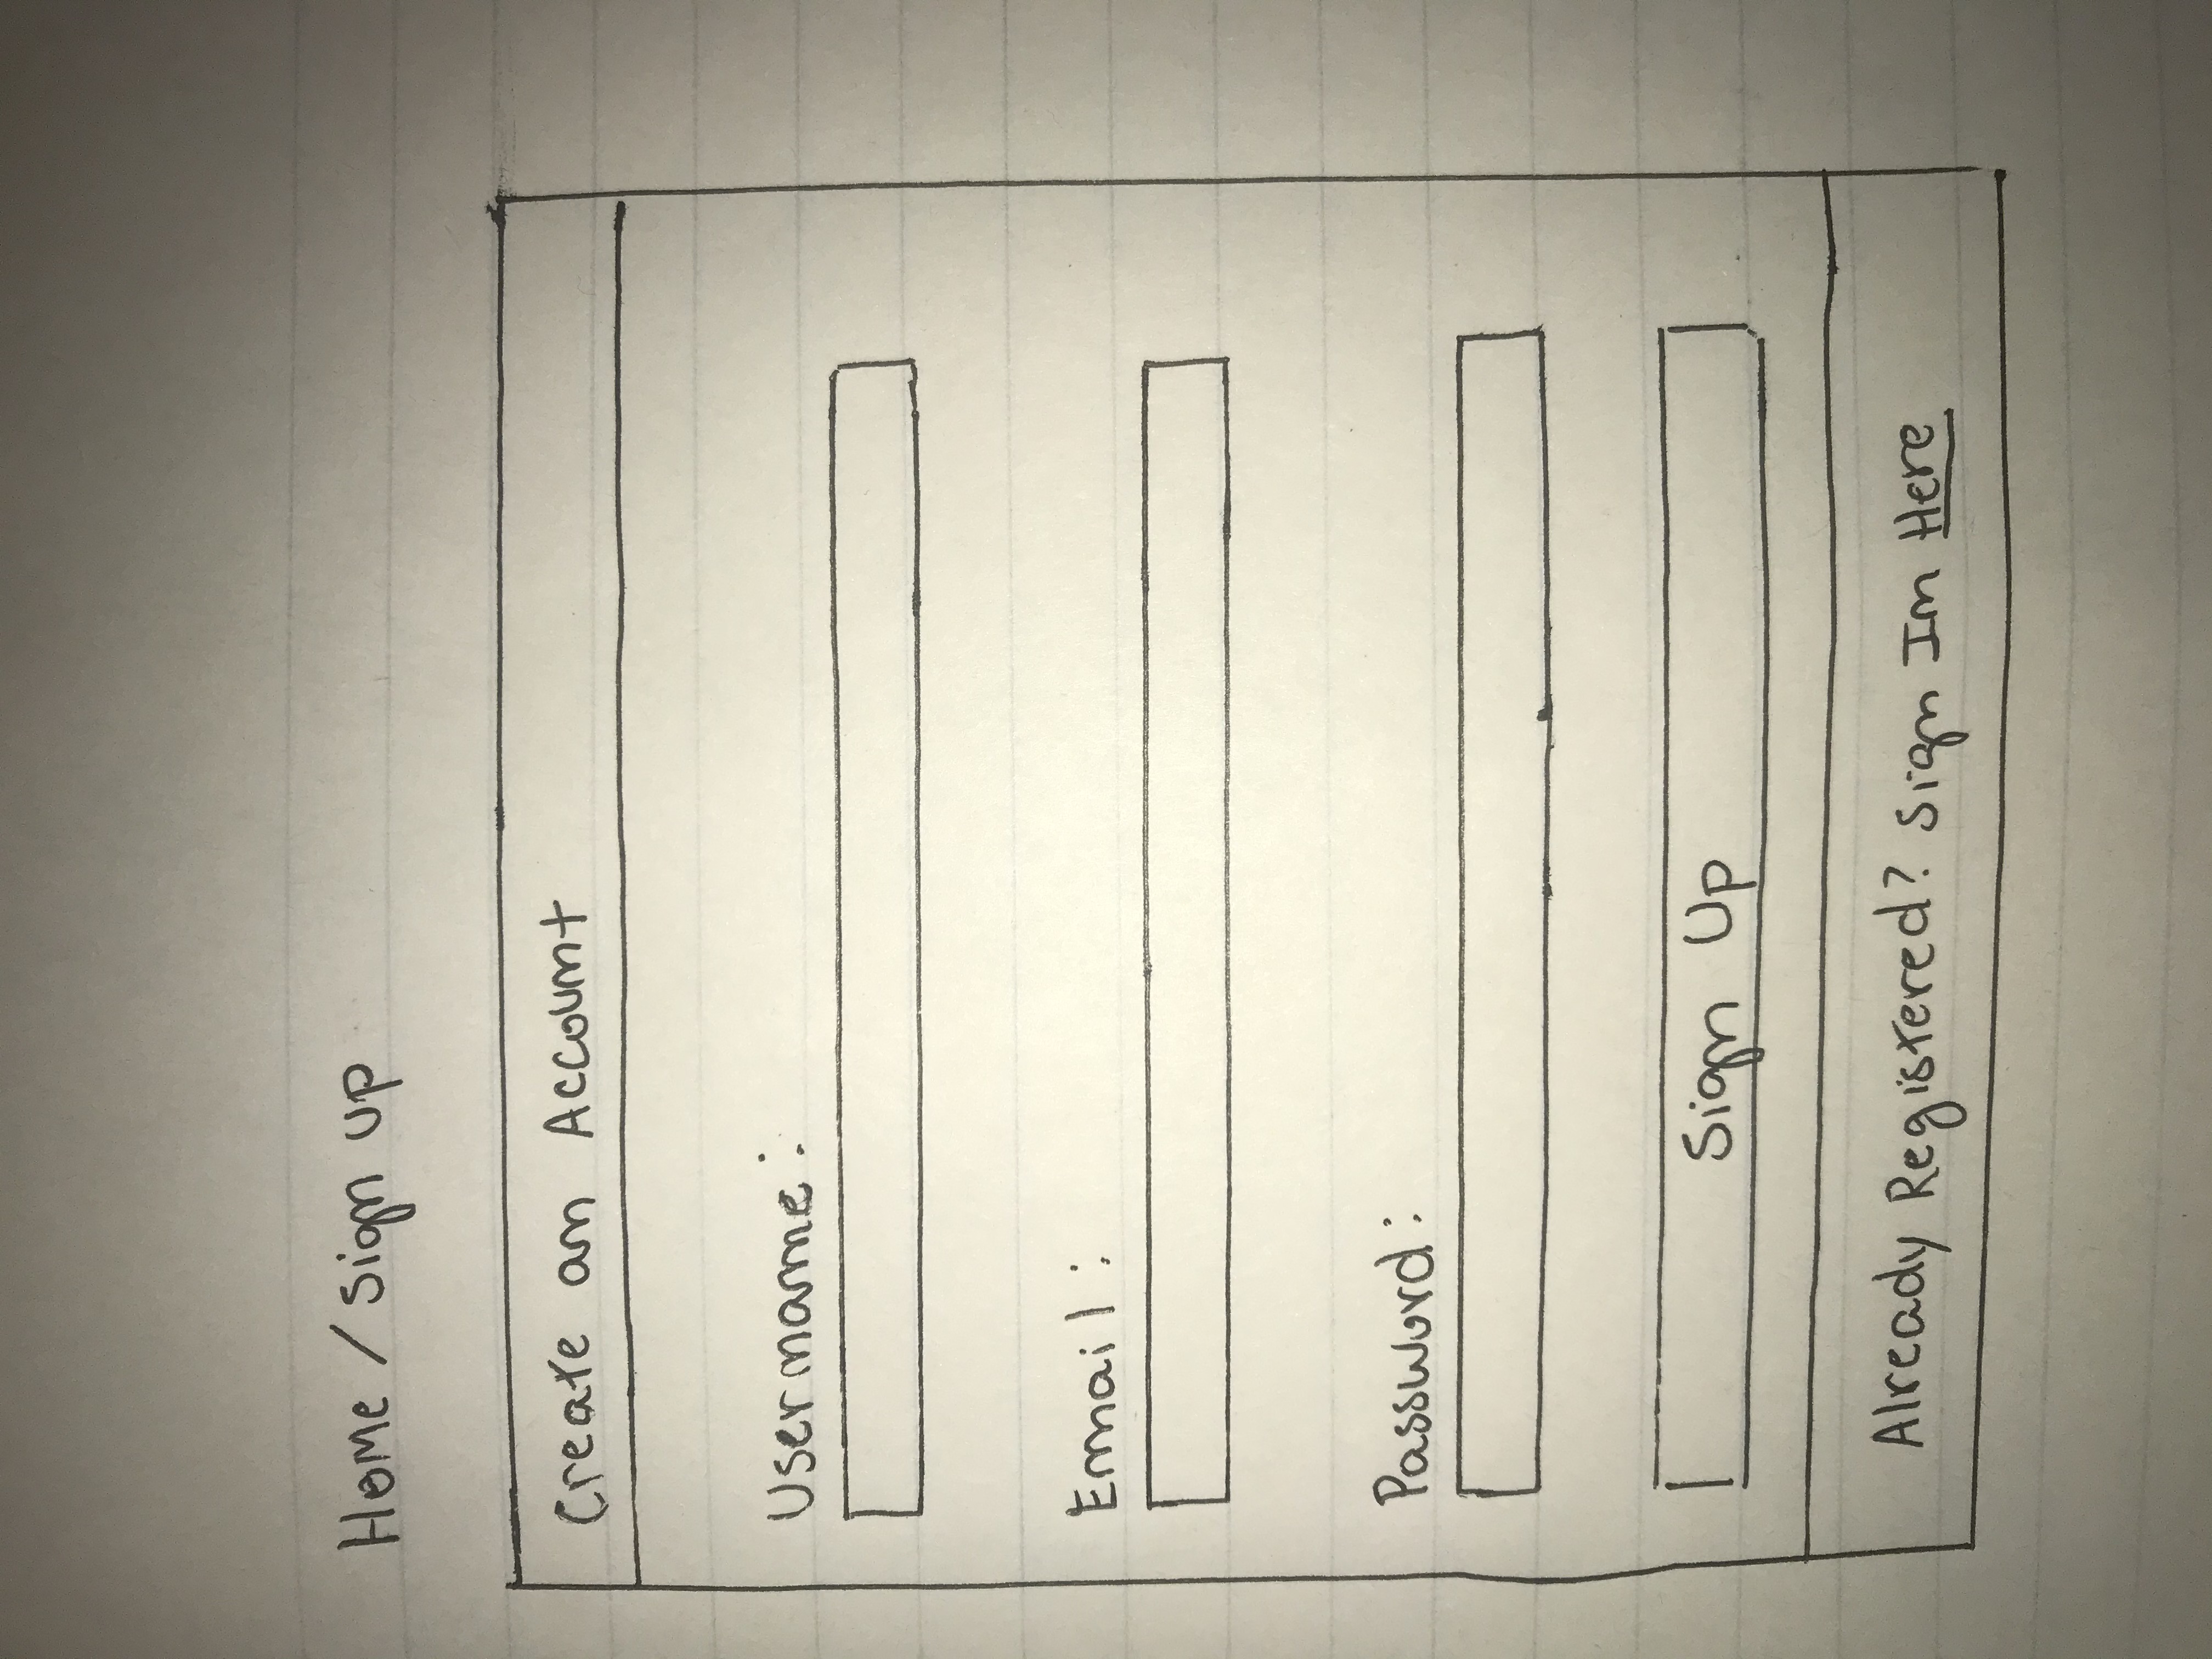 Home / Sign up
Create an Account
Username:
Email:
Password:
Sign Up
Already Registered? Sign In Here